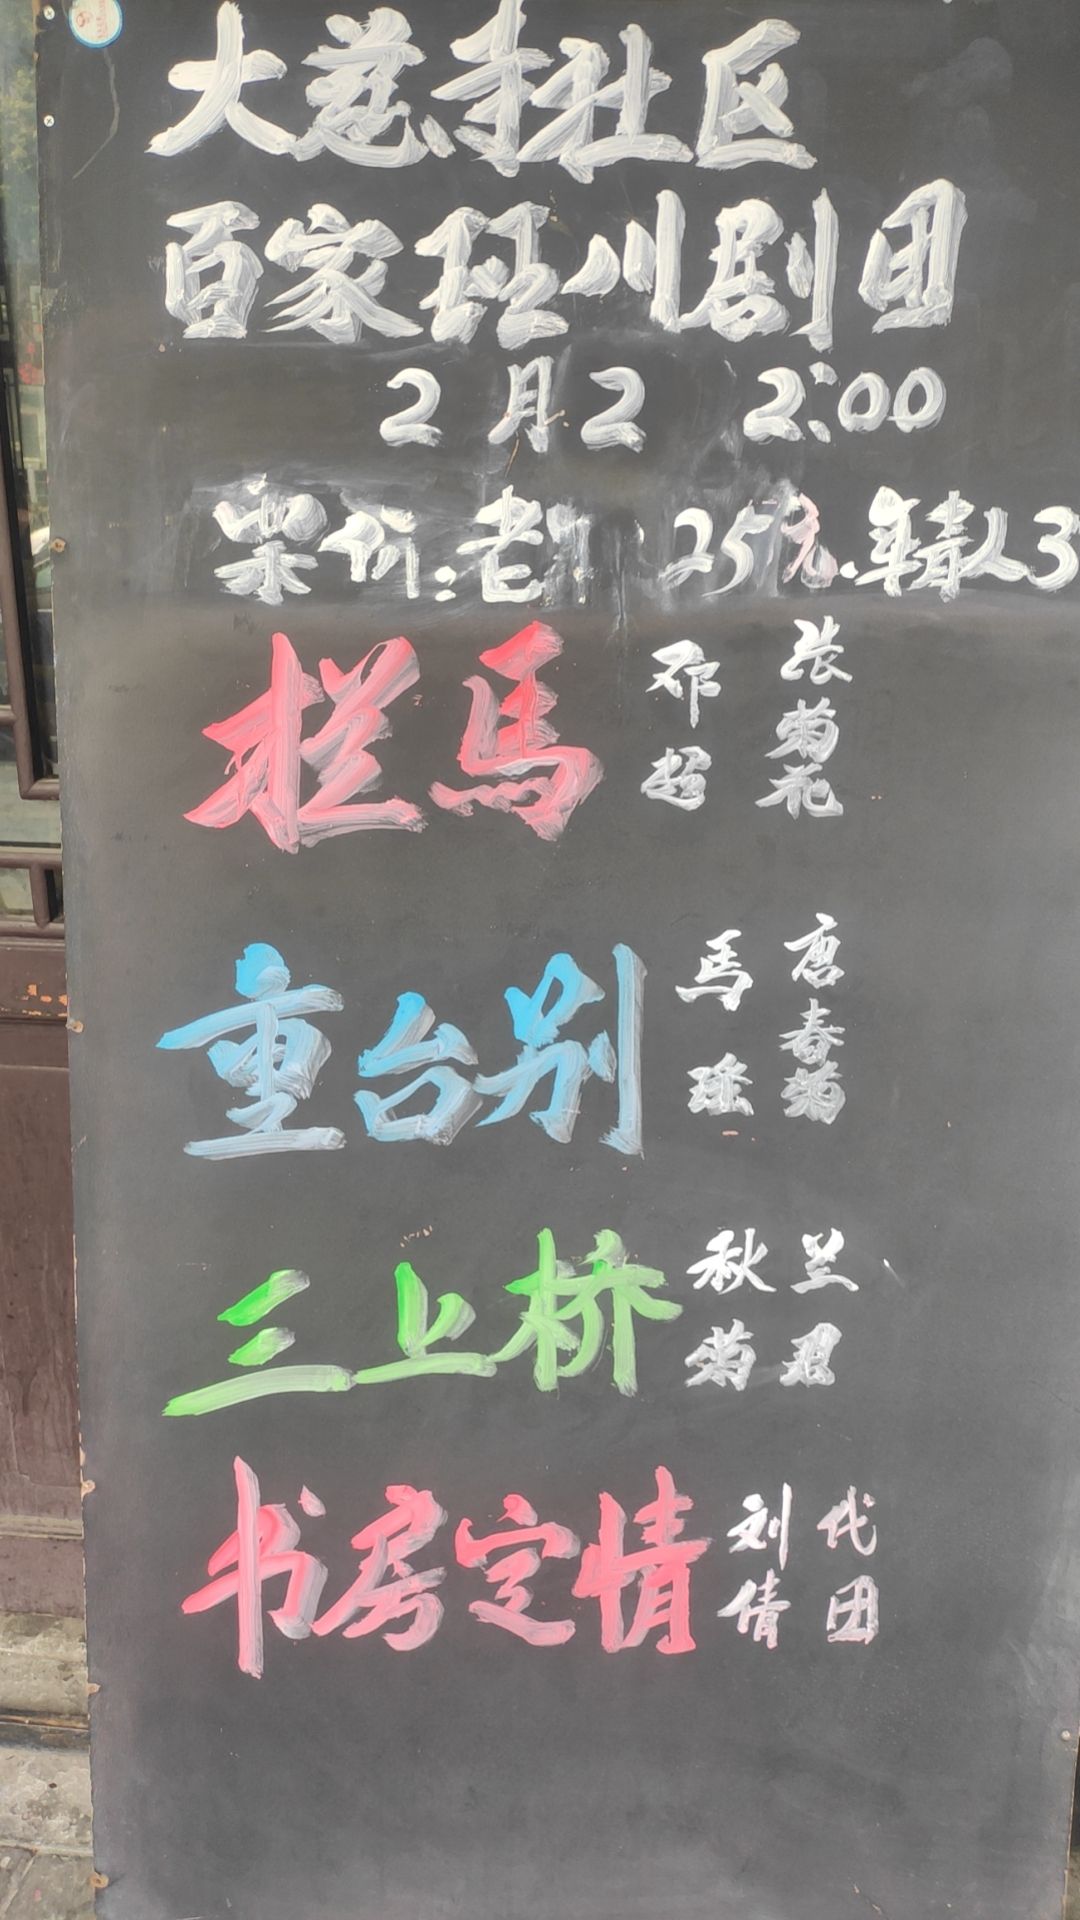 大慈寺社区
百家班川剧团
2月2 2:00
票价:老 25元.年青人3
拦馬 邓超 张菊花
重台别 馬瑶 唐春菊
三上桥 秋菊 兰君
书房定情 刘倩 代团